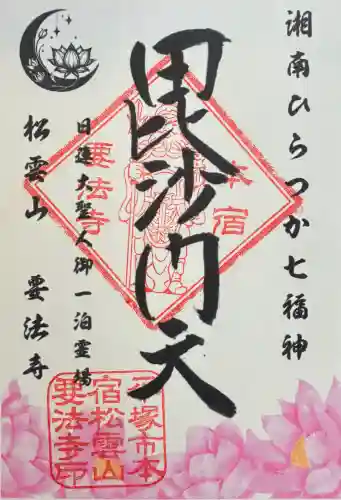 湘南ひらつか七福神
毘沙門天
日蓮大聖人御一泊霊場
松雲山 要法寺
本宿
要法寺
平塚市本
宿松雲山
要法寺印